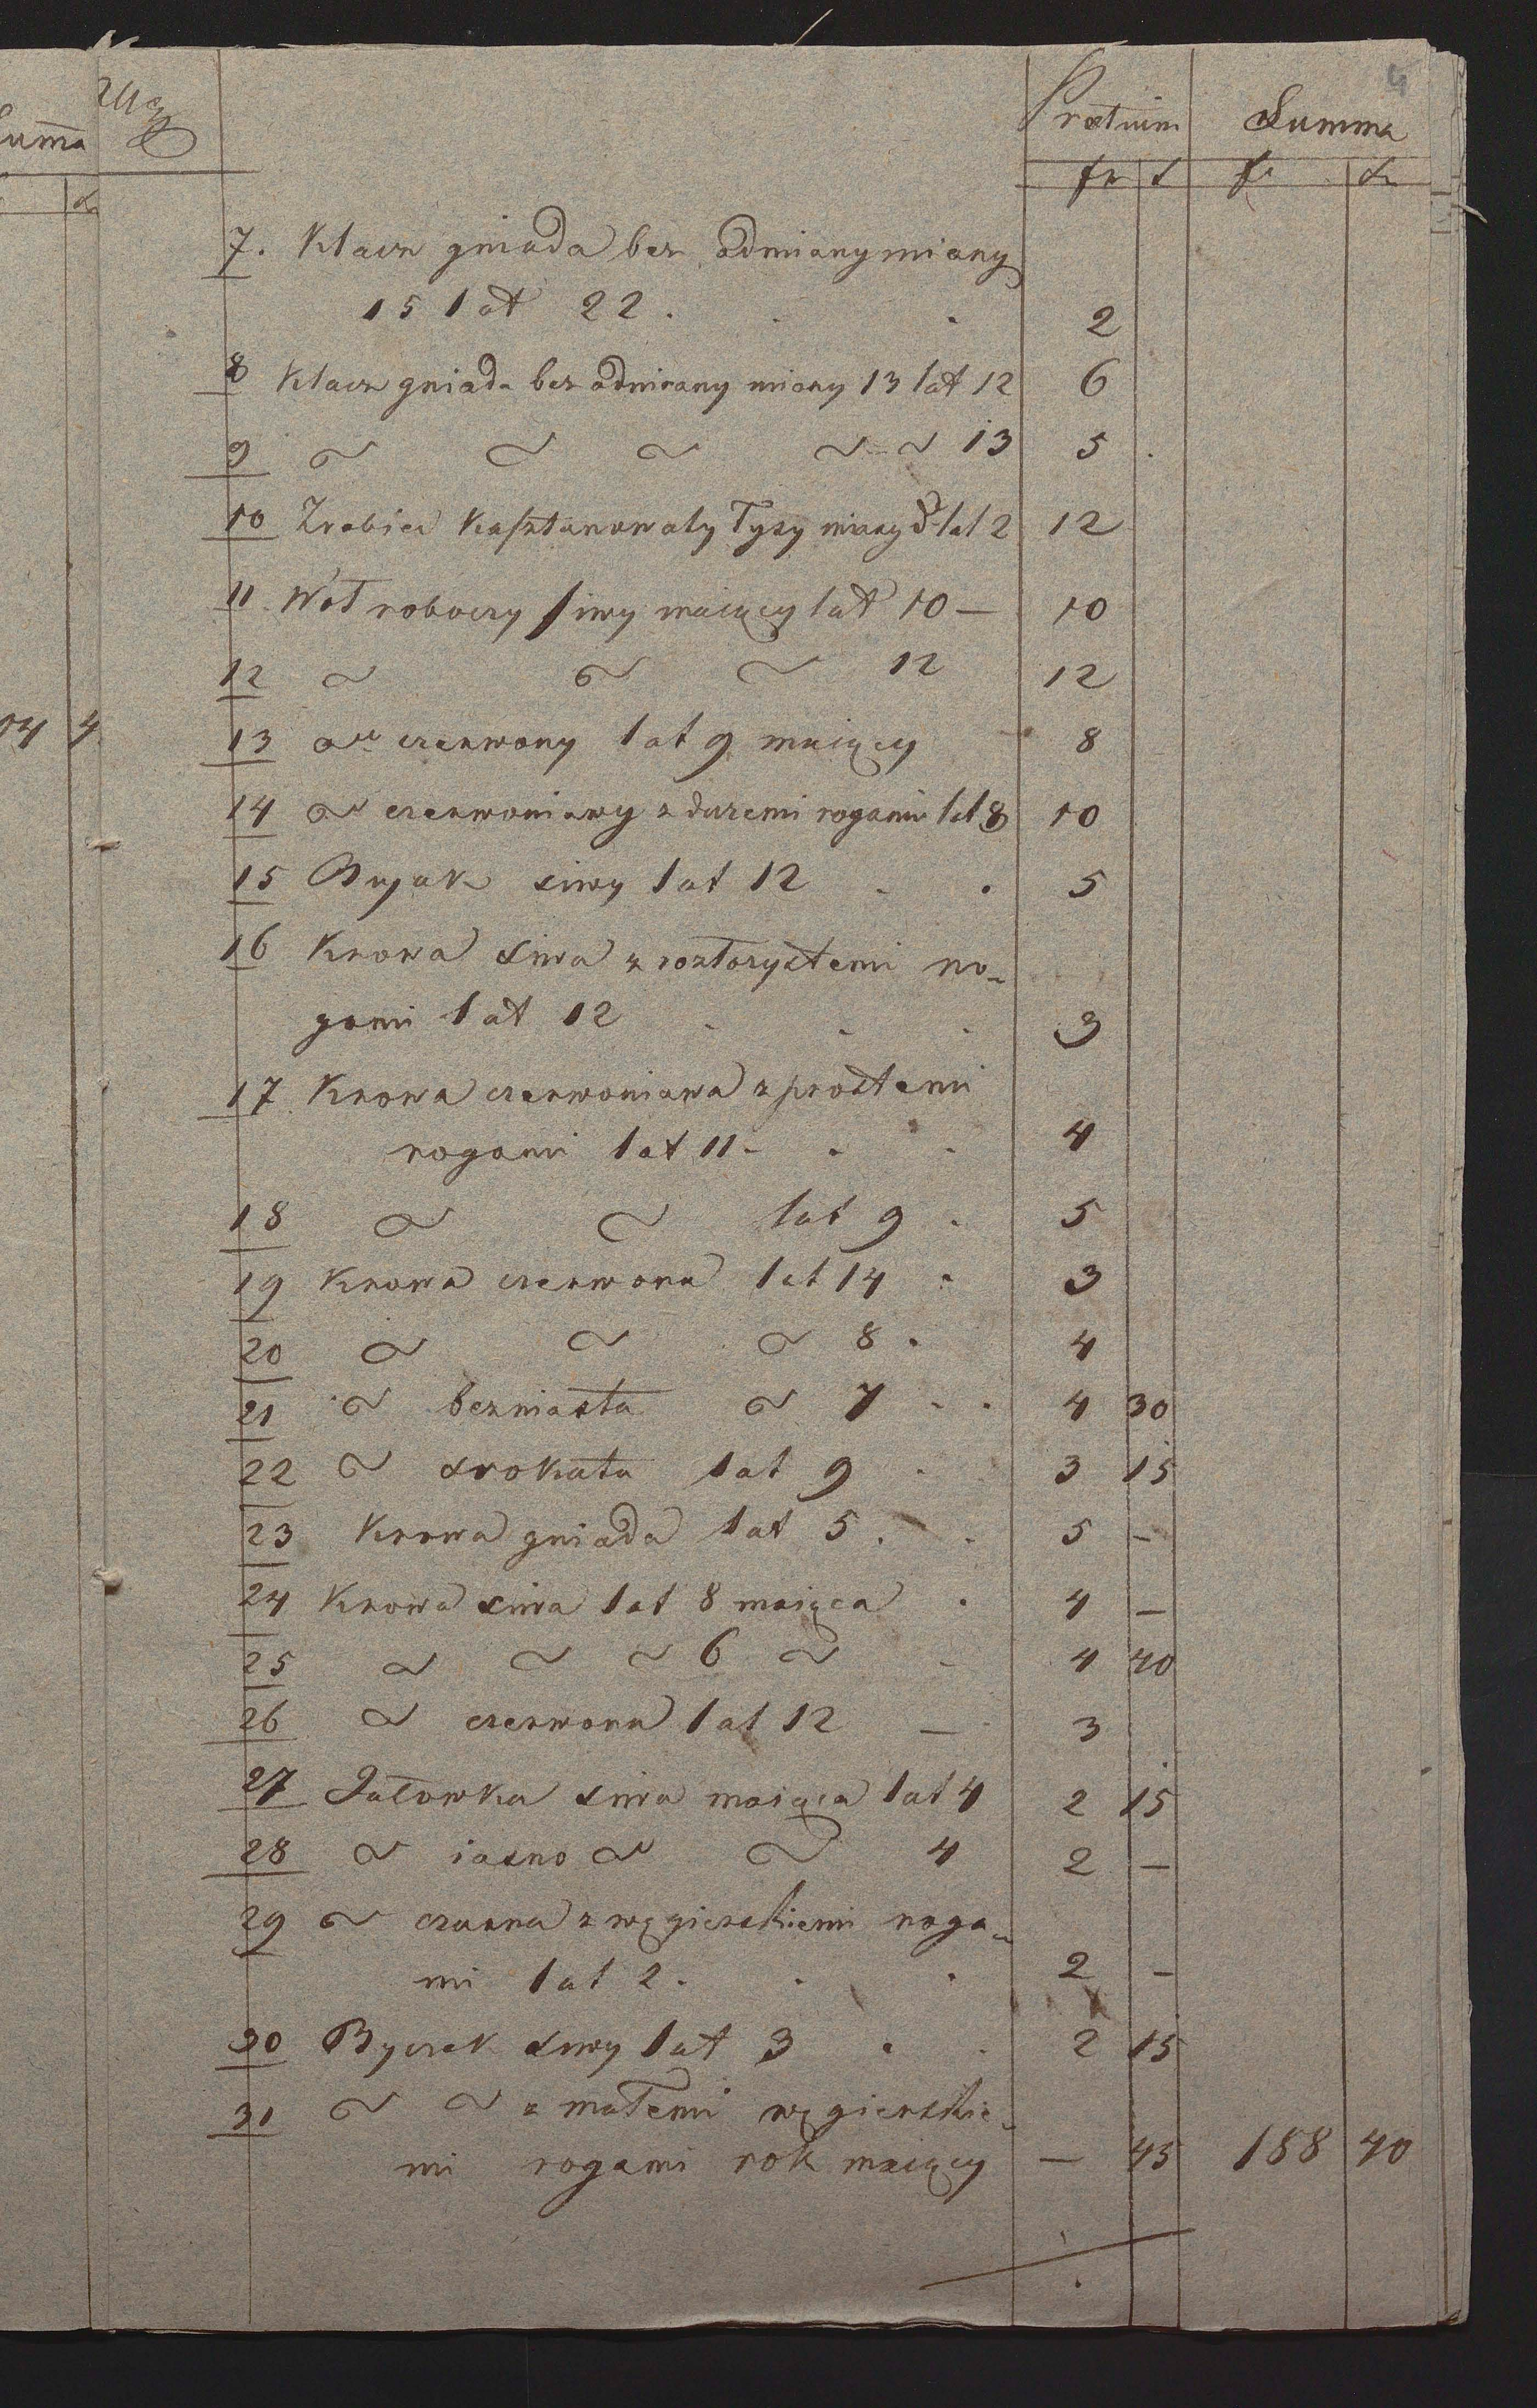 4
Summa
Pretium Summa
fr x fr xr
7. Klacz gniada bez odmiany miary
15 lat 22. 2
8 Klacz gniada bez odmiany miary 13 lat 12 6
9 ~ ~ ~ ~ ~ 13 5
10 Zrebiec Kasztanowaty Łysy miary lat 2 12
11 Woł roboczy siwy maiący lat 10 — 10
12 ~ ~ ~ 12 12
13 ~ czerwony lat 9 maiący 8
14 ~ czerwoniawy z dużemi rogami lat 8 10
15 Bujak siwy lat 12 . . 5
16 Krowa siwa z roztorzystemi ro-
gami lat 12 . . . 3
17 Krowa czerwoniawa z prostemi
rogami lat 11 - . . 4
18 ~ ~ lat 9 . 5
19 Krowa czerwona lat 14 . 3
20 ~ ~ ~ 8 . 4
21 ~ bezmiasta ~ 7 . . 4 30
22 ~ srokata lat 9 . 3 15
23 Krowa gniada lat 5 . . 5 —
24 Krowa siwa lat 8 maiąca . 4 —
25 ~ ~ ~ 6 ~ - 4 40
26 ~ czerwona lat 12 — 3
27 Jałowka siwa maiąca lat 4 2 15
28 ~ iasno ~ ~ 4 2 —
29 ~ czarna z węgierskiemi roga-
mi lat 2 . . . 2 —
30 Byczek siwy lat 3 . . 2 15
31 ~ ~ z małemi węgierskie-
mi rogami rok maiący — 45 188 40